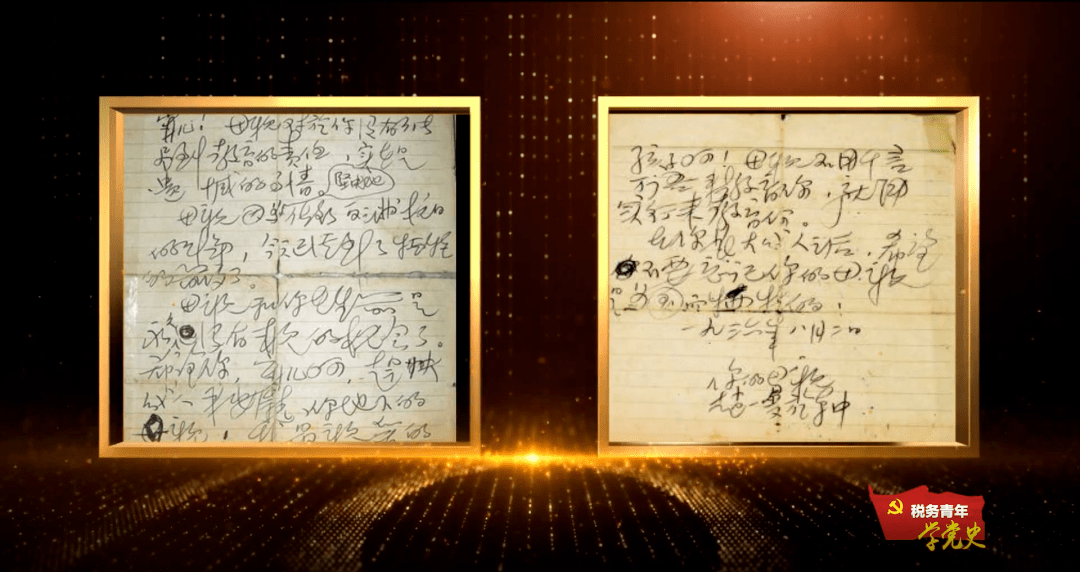 寧儿！母親对於你没有能
尽到教育的责任，实在是
遗憾的事情。坚决地
母親因 做了反满抗日
的斗争，今天已经到了牺牲
的前夕了。
母親和你在生前是
永久没有再見的机会了。
希望你，寧儿啊，赶快
成人，来安慰你地下的
母親！我最親爱的
孩子啊！母親不用千言
万语来教育你，就用
实行来教育你。
在你长大成人之后，希望
不要忘记你的母親
是为国而牺牲的！
一九三六年八月二日
你的母親
赵一曼於车中
税务青年
学党史